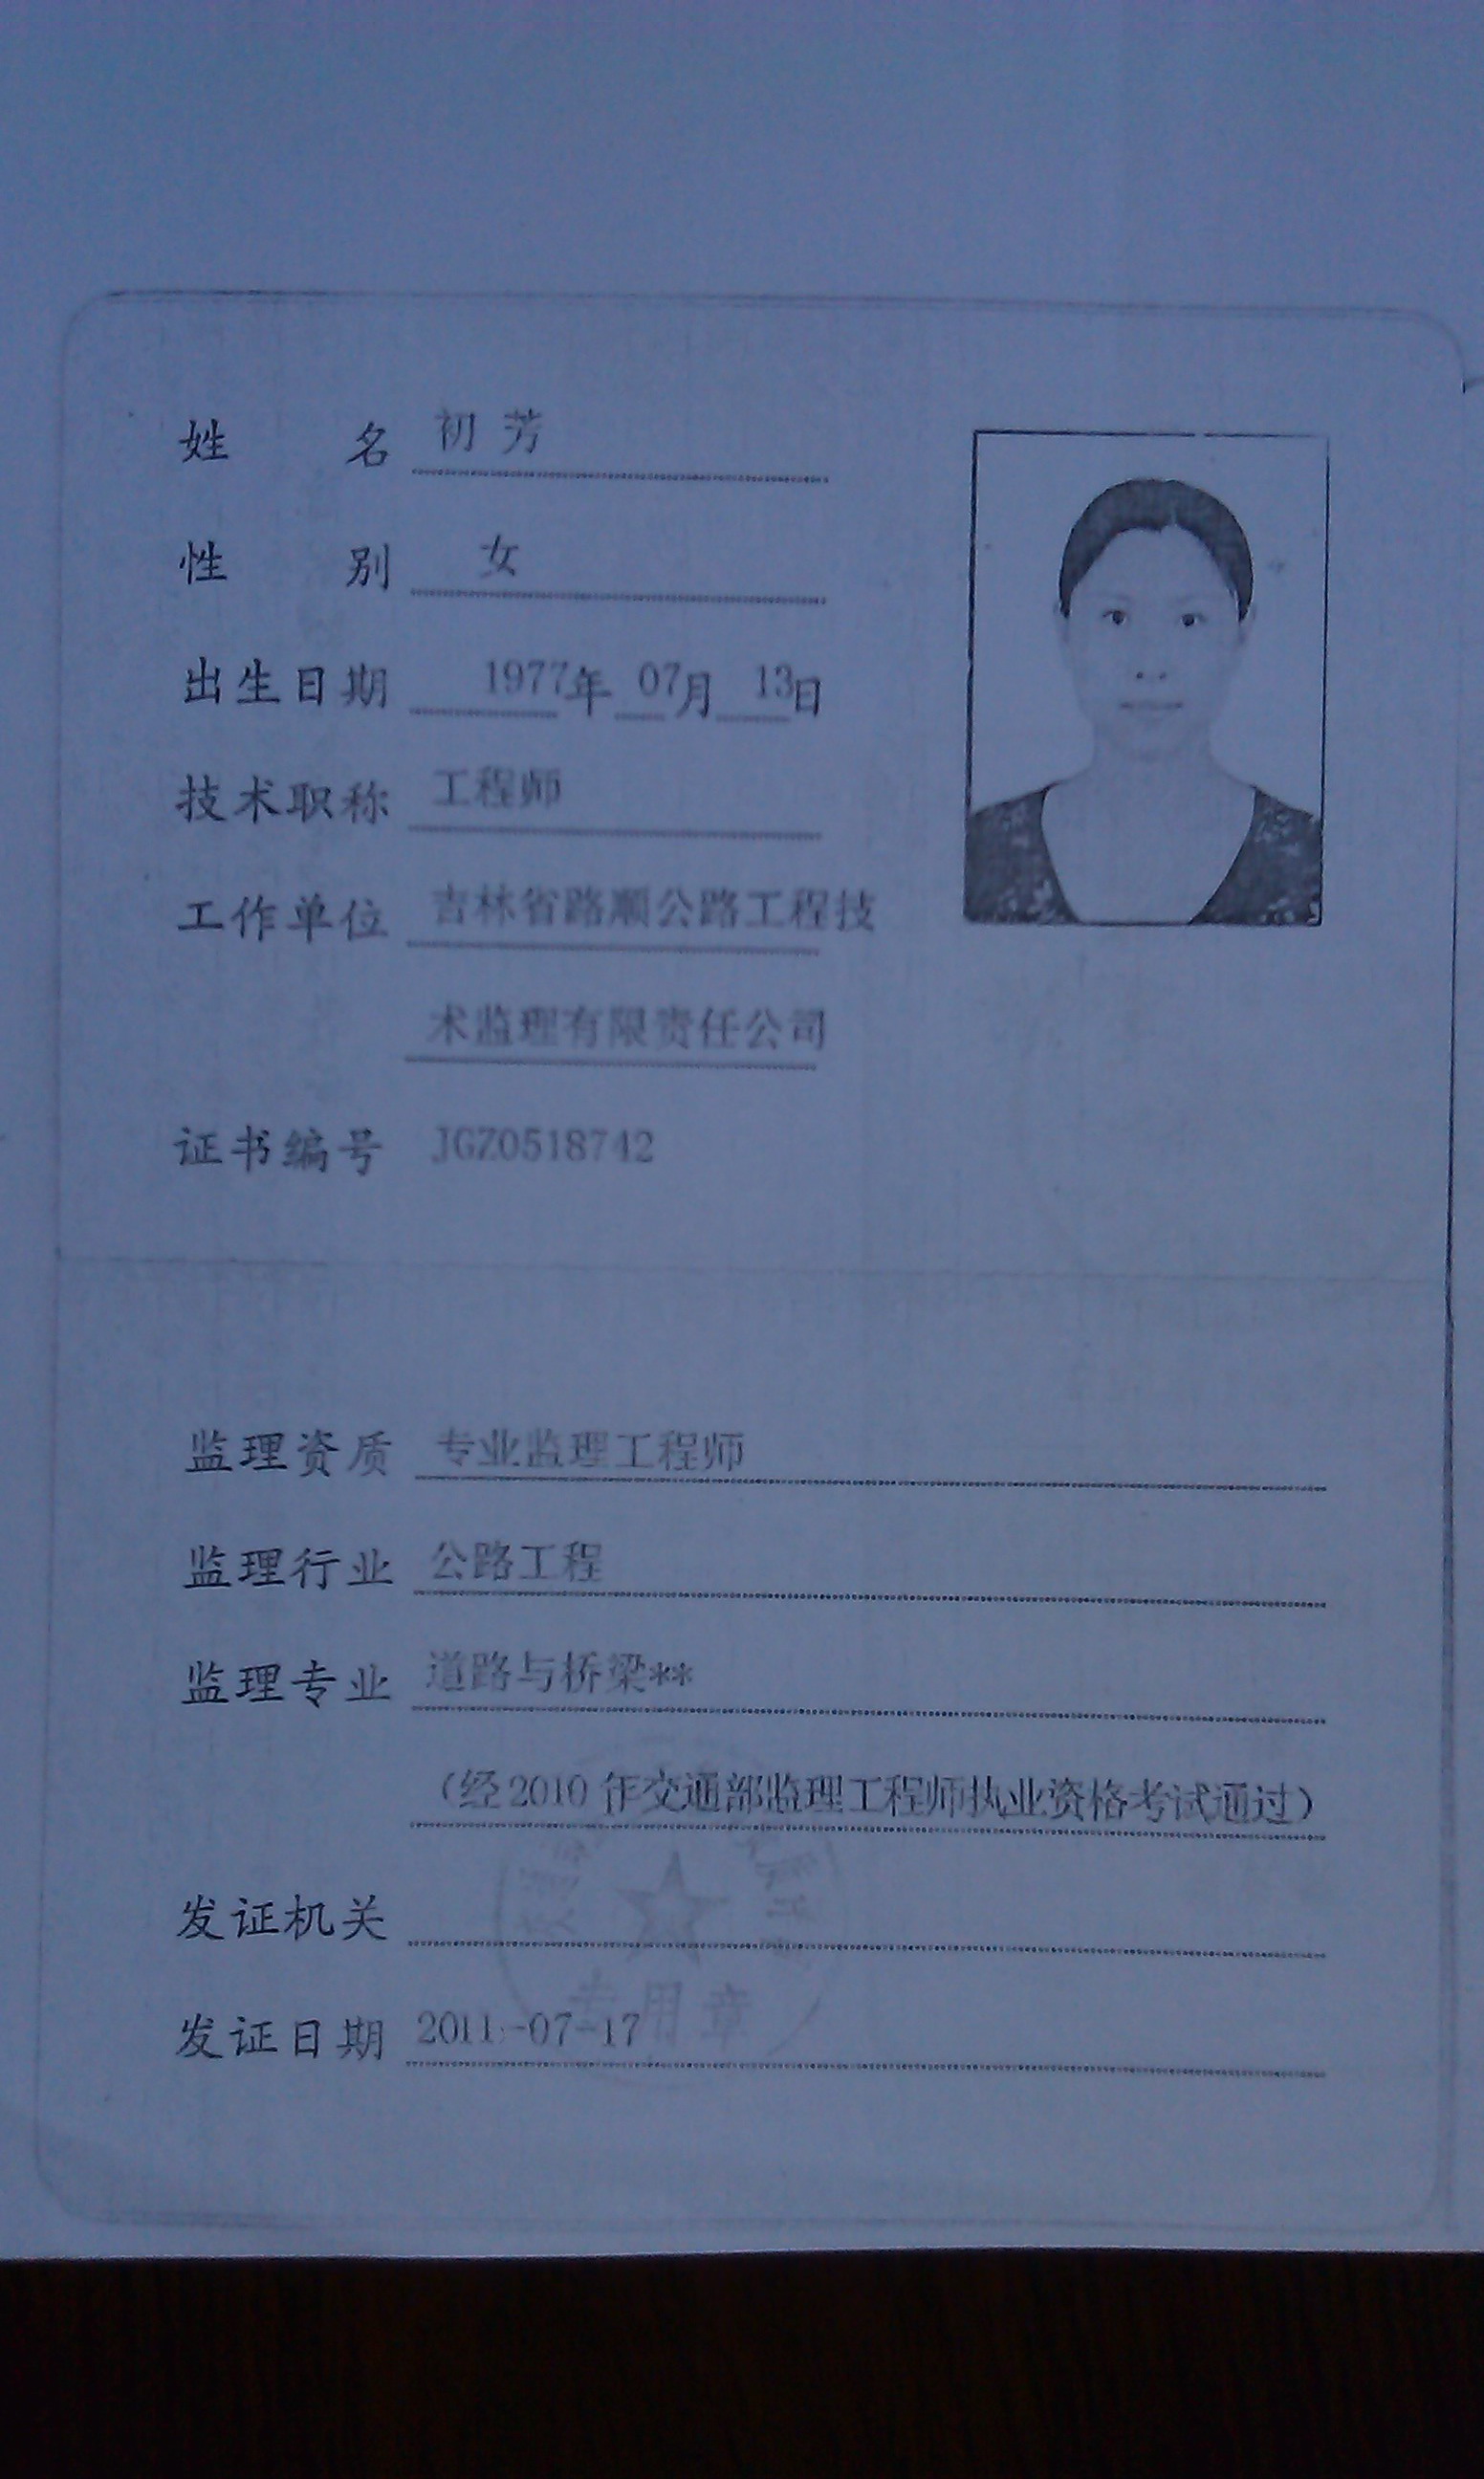 姓名 初 芳
性别 女
出生日期 1977年 07月 13日
技术职称 工程师
工作单位 吉林省路顺公路工程技
术监理有限责任公司
证书编号 JGZ0518742
监理资质 专业监理工程师
监理行业 公路工程
监理专业 道路与桥梁**
(经2010年交通部监理工程师执业资格考试通过)
发证机关
专用章
发证日期 2011-07-17